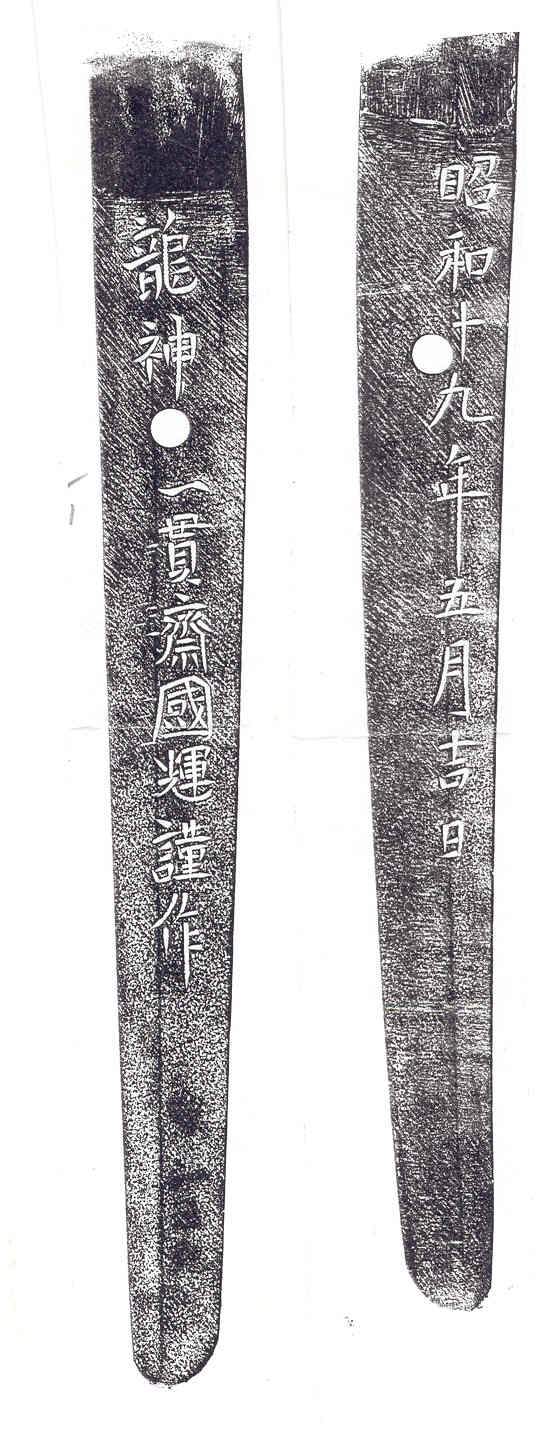 昭和十九年五月吉日
龍神一貫齋國輝謹作